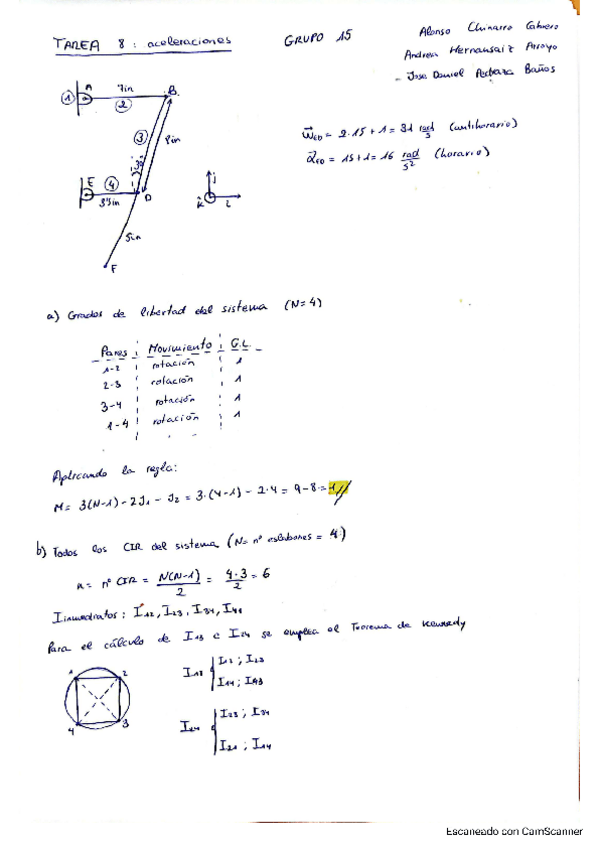 TAREA 8: aceleraciones
GRUPO 15
Alonso Chinarro Cabrero
Andrea Hernansaiz Arroyo
Jose Daniel Baños
A 7in B
1 2
3 8in
30°
E 4
3'5in D
j
k i
5in
F
ω⃗CD = 2·15+1 = 31 rad/s (antihorario)
α⃗CD = 15+1 = 16 rad/s² (horario)
a) Grados de libertad del sistema (N=4)
Pares Movimiento G.L.
1-2 rotación 1
2-3 rotación 1
3-4 rotación 1
1-4 rotación 1
Aplicando la regla:
M = 3(N-1) - 2J1 - J2 = 3·(4-1) - 2·4 = 9-8 = 1//
b) Todos los CIR del sistema (N = nº eslabones = 4)
n = nº CIR = N(N-1)/2 = 4·3/2 = 6
Inmediatos: I12, I23, I34, I41
Para el cálculo de I13 e I24 se emplea el Teorema de Kennedy
1 2
4 3
I13 { I12 ; I23
I14 ; I43
I24 { I23 ; I34
I21 ; I14
Escaneado con CamScanner